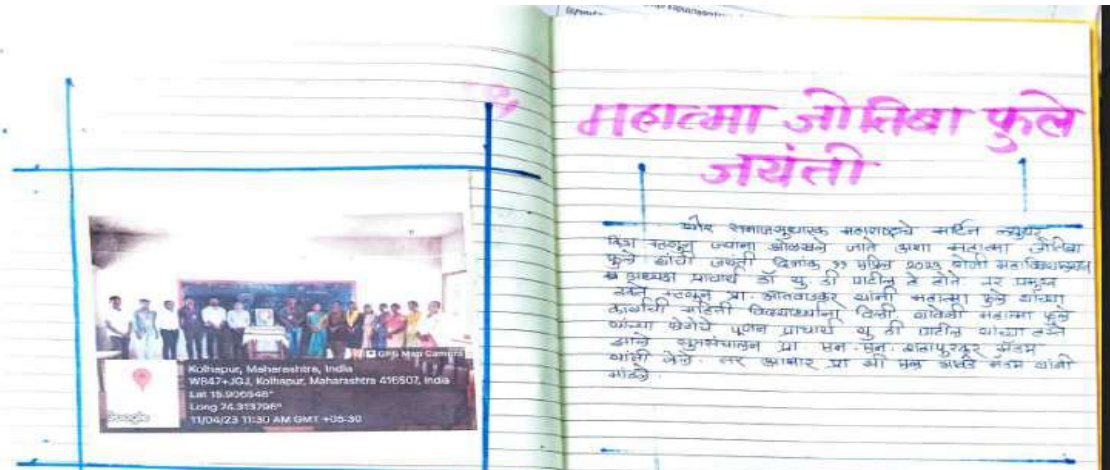 GPS Map Camera
Kolhapur, Maharashtra, India
WR47+JGJ, Kolhapur, Maharashtra 416507, India
Lat 15.906546°
Long 74.313796°
11/04/23 11:30 AM GMT +05:30
Google
महात्मा जोतिबा फुले
जयंती
थोर समाजसुधारक महाराष्ट्राचे मार्टिन ल्युथर
किंग म्हणून ज्यांना ओळखले जाते अशा महात्मा जोतिबा
फुले यांची जयंती दिनांक ११ एप्रिल २०२३ रोजी महाविद्यालयात
अध्यक्ष प्राचार्य डॉ यु. डी पाटील हे होते तर प्रमुख
वक्ते म्हणून प्रा. यांनी महात्मा फुले यांच्या
कार्याची माहिती विद्यार्थ्यांना दिली महात्मा फुले
यांच्या फोटोचे पूजन प्राचार्य यु डी पाटील यांच्या हस्ते
झाले सुत्रसंचालन प्रा. एन. एन. मॅडम
यांनी केले. तर आभार प्रा मॅडम यांनी
मांडले.